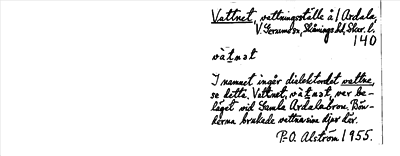 Vattnet, vattningsställe å / Ardala,
V. Gerumsn, Skånings hd, Skar. l.
140
I namnet ingår dialektordet vattne,
se detta. Vattnet, var be-
läget vid Gamla Ardalabron. Bön-
derna brukade vattna sina djur där.
P.-O. Alström / 1955.